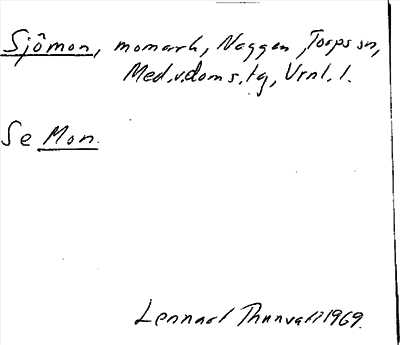 Sjömon, momark, Naggen, Torps sn,
Med.v.doms.tg, Vrnl. l.
Se Mon.
Lennart Thunvall 1969.